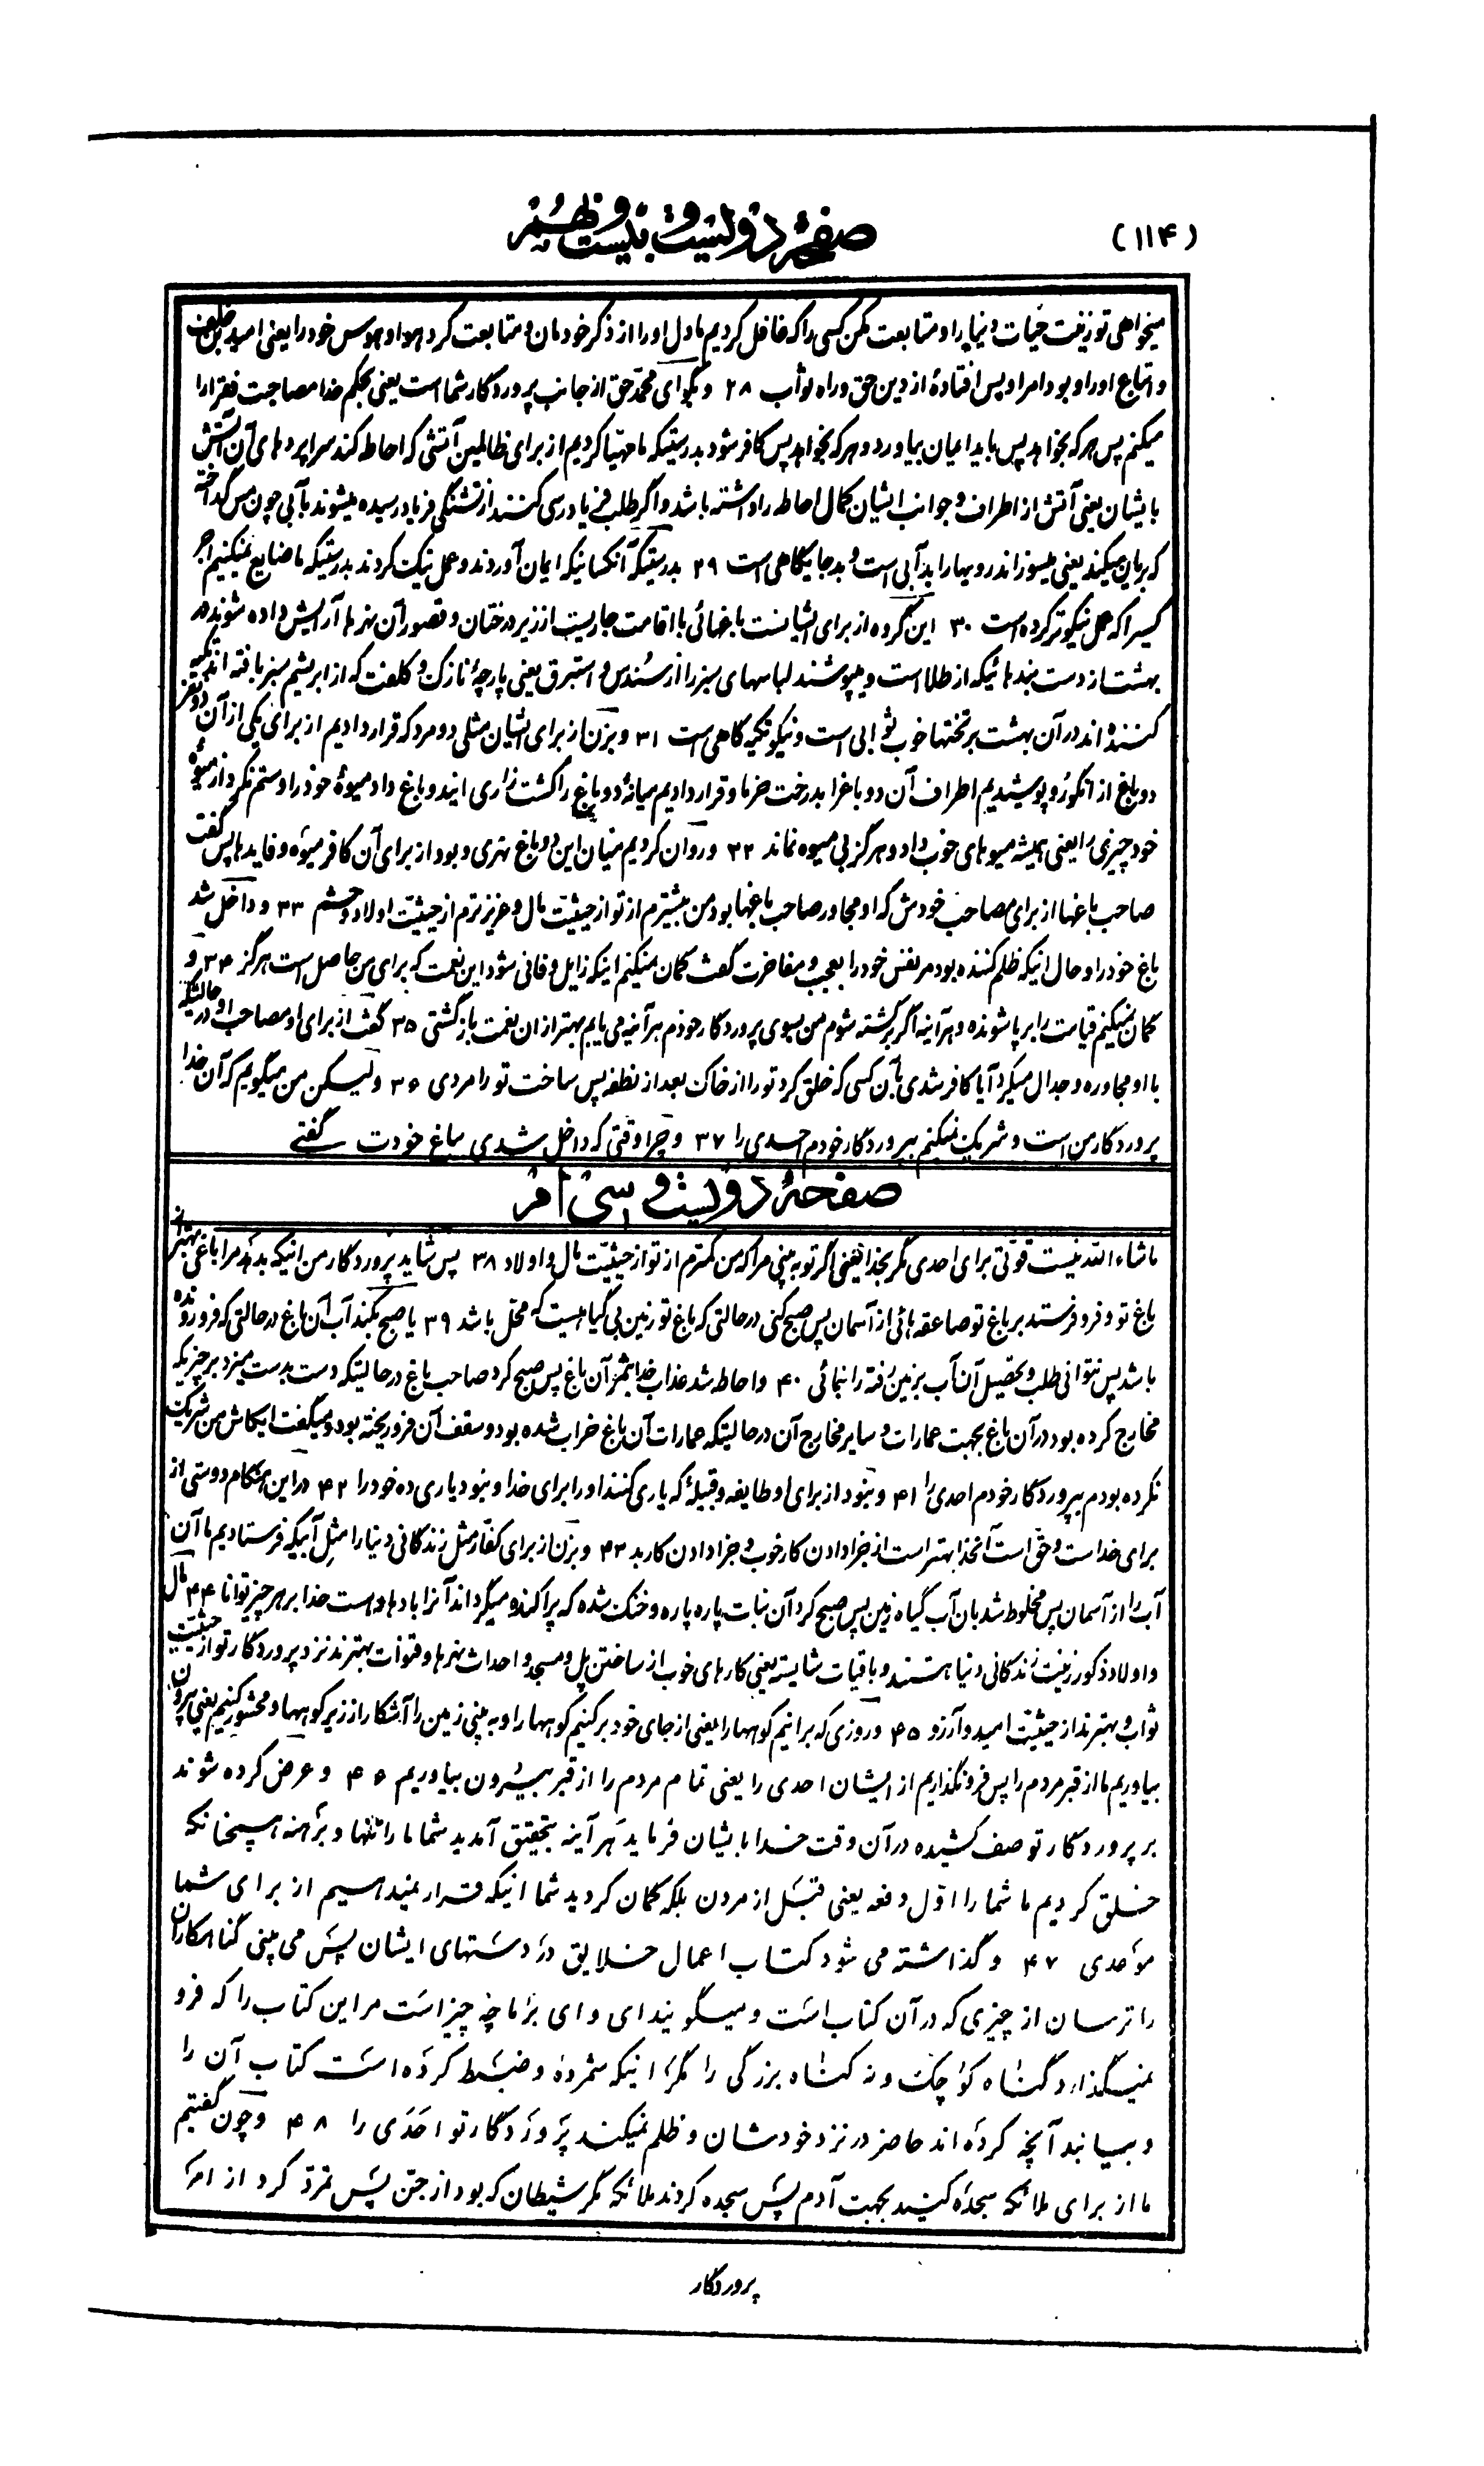 (۱۱۴)
صفحهٔ دویست و بیست و نهم
میخواهی تو زینت حیات دنیا را و متابعت مکن کسی را که غافل کردیم ما دل او را از ذکر خودمان و متابعت کرد هوا و هوس خود را یعنی امید بن خلف
و اتباع او را و بود امر او پس افتادهٔ از دین حق و راه ثواب ۲۸ و بگو ای محمد حق از جانب پروردگار شما است یعنی بحکم خدا مصاحبت فقرا را
میکنم پس هر که بخواهد پس باید ایمان بیاورد و هر که بخواهد پس کافر شود بدرستیکه ما مهیّا کردیم از برای ظالمین آتشی که احاطه کند سراپرده های آن آتش
بایشان یعنی آتش از اطراف و جوانب ایشان کمال احاطه را داشته باشد و اگر طلب فریادرسی کنند از تشنگی فریاد رسیده میشوند بآبی چون مس گداخته
که بریان میکند یعنی میسوزاند رویها را بد آبی است و بد جایگاهی است ۲۹ بدرستیکه آنکسانیکه ایمان آوردند و عمل نیک کردند بدرستیکه ما ضایع نمیکنیم اجر
کسیرا که عمل نیکوتر کرده است ۳۰ این گروه از برای ایشانست باغهائی با اقامت جاریست از زیر درختان و قصور آن نهرها آرایش داده شوند در
بهشت از دست بندهائیکه از طلا است و میپوشند لباسهای سبز را از سُندس و استبرق یعنی پارچهٔ نازک و کلفت که از ابریشم سبز بافته اند تکیه
کننده اند در آن بهشت بر تختها خوب ثوابی است و نیکو تکیه گاهی است ۳۱ و بزن از برای ایشان مثلی دو مرد که قرار دادیم از برای یکی از آن دو نفر
دو باغ از انگور و پوشیدیم اطراف آن دو باغرا بدرخت خرما و قرار دادیم میانهٔ دو باغ را کشت زاری ایندو باغ داد میوهٔ خود را و ستم نکرد از میوهٔ
خود چیزی را یعنی همیشه میوهای خوب داد و هرگز بی میوه نماند ۳۲ و روان کردیم میان این دو باغ نهری و بود از برای آن کافر میوه و فایدها پس گفت
صاحب باغها از برای مصاحب خودش که او مجاور صاحب باغها بود من بیشترم از تو از حیثیت مال و عزیزترم از حیثیت اولاد و حشم ۳۳ و داخل شد
باغ خود را و حال انیکه ظلم کننده بود مر نفس خود را بعجب و مفاخرت گفت گمان نمیکنم اینکه زایل و فانی شود این نعمت که برای من حاصل است هرگز ۳۴ و
گمان نمیکنم قیامت را برپا شونده و هرآینه اگر برگشته شوم من بسوی پروردگار خودم هرآینه می یابم بهتر ازان نعمت بازگشتی ۳۵ گفت از برای او مصاحب او در حالتیکه
با او مجاوره و جدال میکرد آیا کافر شدی بآن کسی که خلق کرد تو را از خاک بعد از نطفه پس ساخت تو را مردی ۳۶ ولیکن من میگویم که آن خدا
پروردگار من است و شریک نمیکنم بپروردگار خودم احدی را ۳۷ و چرا وقتی که داخل شدی بباغ خودت گفتی
صفحهٔ دویست و سی ام
ماشاء الله نیست قوّتی برای احدی مگر بخدا یعنی اگر تو به بینی مرا که من کمترم از تو از حیثیّت مال و اولاد ۳۸ پس شاید پروردگار من انیکه بدهد مرا باغی بهتر از
باغ تو و فرو فرستد بر باغ تو صاعقه هائی از آسمان پس صبح کنی در حالتی که باغ تو زمین بی گیاهیست که محلّ باشد ۳۹ یا صبح بکند آب آن باغ در حالتی که فرو رونده
باشد پس نتوانی طلب و تحصیل آن آب بزمین رفته را نمائی ۴۰ و احاطه شد عذاب خدا بثمر آن باغ پس صبح کرد صاحب باغ در حالتیکه دست بدست میزد بر چیزیکه
مخارج کرده بود در آن باغ بجهت عمارات و سایر مخارج آن در حالتیکه عمارات آن باغ خراب شده بود و سقف آن فرو ریخته بود و میگفت ایکاش من شریک
نکرده بودم بپروردگار خودم احدی را ۴۱ و نبود از برای او طایفه و قبیلهٔ که یاری کنند او را برای خدا و نبود یاری ده خود را ۴۲ در این هنگام دوستی از
برای خدا ست و حق است آنخدا بهتر است از جزا دادن کار خوب و جزا دادن کار بد ۴۳ و بزن از برای کفّار مثل زندگانی دنیا را مثل آبیکه فرستادیم ما آن
آب را از آسمان پس مخلوط شد بان آب گیاه زمین پس صبح کرد آن نبات پاره پاره و خشک شده که پراکنده میگرداند آنرا بادها و است خدا بر هر چیز توانا ۴۴ مال
و اولاد ذکور زینت زندگانی دنیا هستند و باقیات شایسته یعنی کارهای خوب از ساختن پل و مسجد و احداث نهرها و قنوات بهترند نزد پروردگار تو از حیثیت
ثواب و بهترند از حیثیّت امید و آرزو ۴۵ و روزی که برانیم کوهها را یعنی از جای خود بر کنیم کوهها را و به بینی زمین را آشکارا از زیر کوهها و محشور کنیم یعنی بیرون
بیاوریم ما از قبر مردم را پس فرو نگذاریم از ایشان احدی را یعنی تمام مردم را از قبر بیرون بیاوریم ۴۶ و عرض کرده شوند
بر پروردگار تو صف کشیده در آن وقت خدا بایشان فرماید هرآینه بتحقیق آمدید شما ما را تنها و برهنه همچنانکه
خلق کردیم ما شما را اوّل دفعه یعنی قبل از مردن بلکه گمان کردید شما انیکه قرار نمیدهیم از برای شما
موعدی ۴۷ و گذاشته می شود کتاب اعمال خلایق در دستهای ایشان پس می بینی گناهکاران
را ترسان از چیزی که در آن کتاب است و میگویند ای وای بر ما چه چیز است مر این کتاب را که فرو
نمیگذارد گناه کوچک و نه گناه بزرگی را مگر انیکه شمرده و ضبط کرده است کتاب آن را
و بیابند آنچه کرده اند حاضر در نزد خودشان و ظلم نمیکند پروردگار تو احدی را ۴۸ و چون گفتیم
ما از برای ملائکه سجده کنید بجهت آدم پس سجده کردند ملائکه مگر شیطان که بود از جنّ پس تمرّد کرد از امر
پروردگار